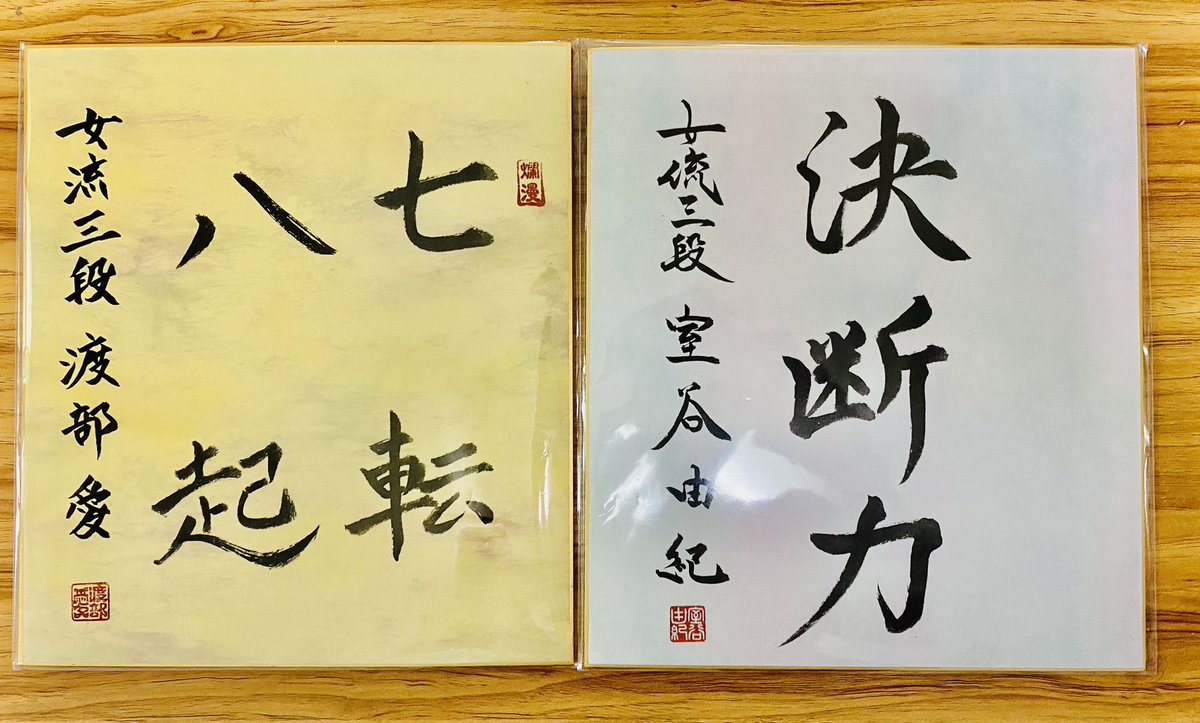 爛漫
七転
八起
女流三段 渡部愛
渡部
愛
決断力
女流三段 室谷由紀
室谷
由紀